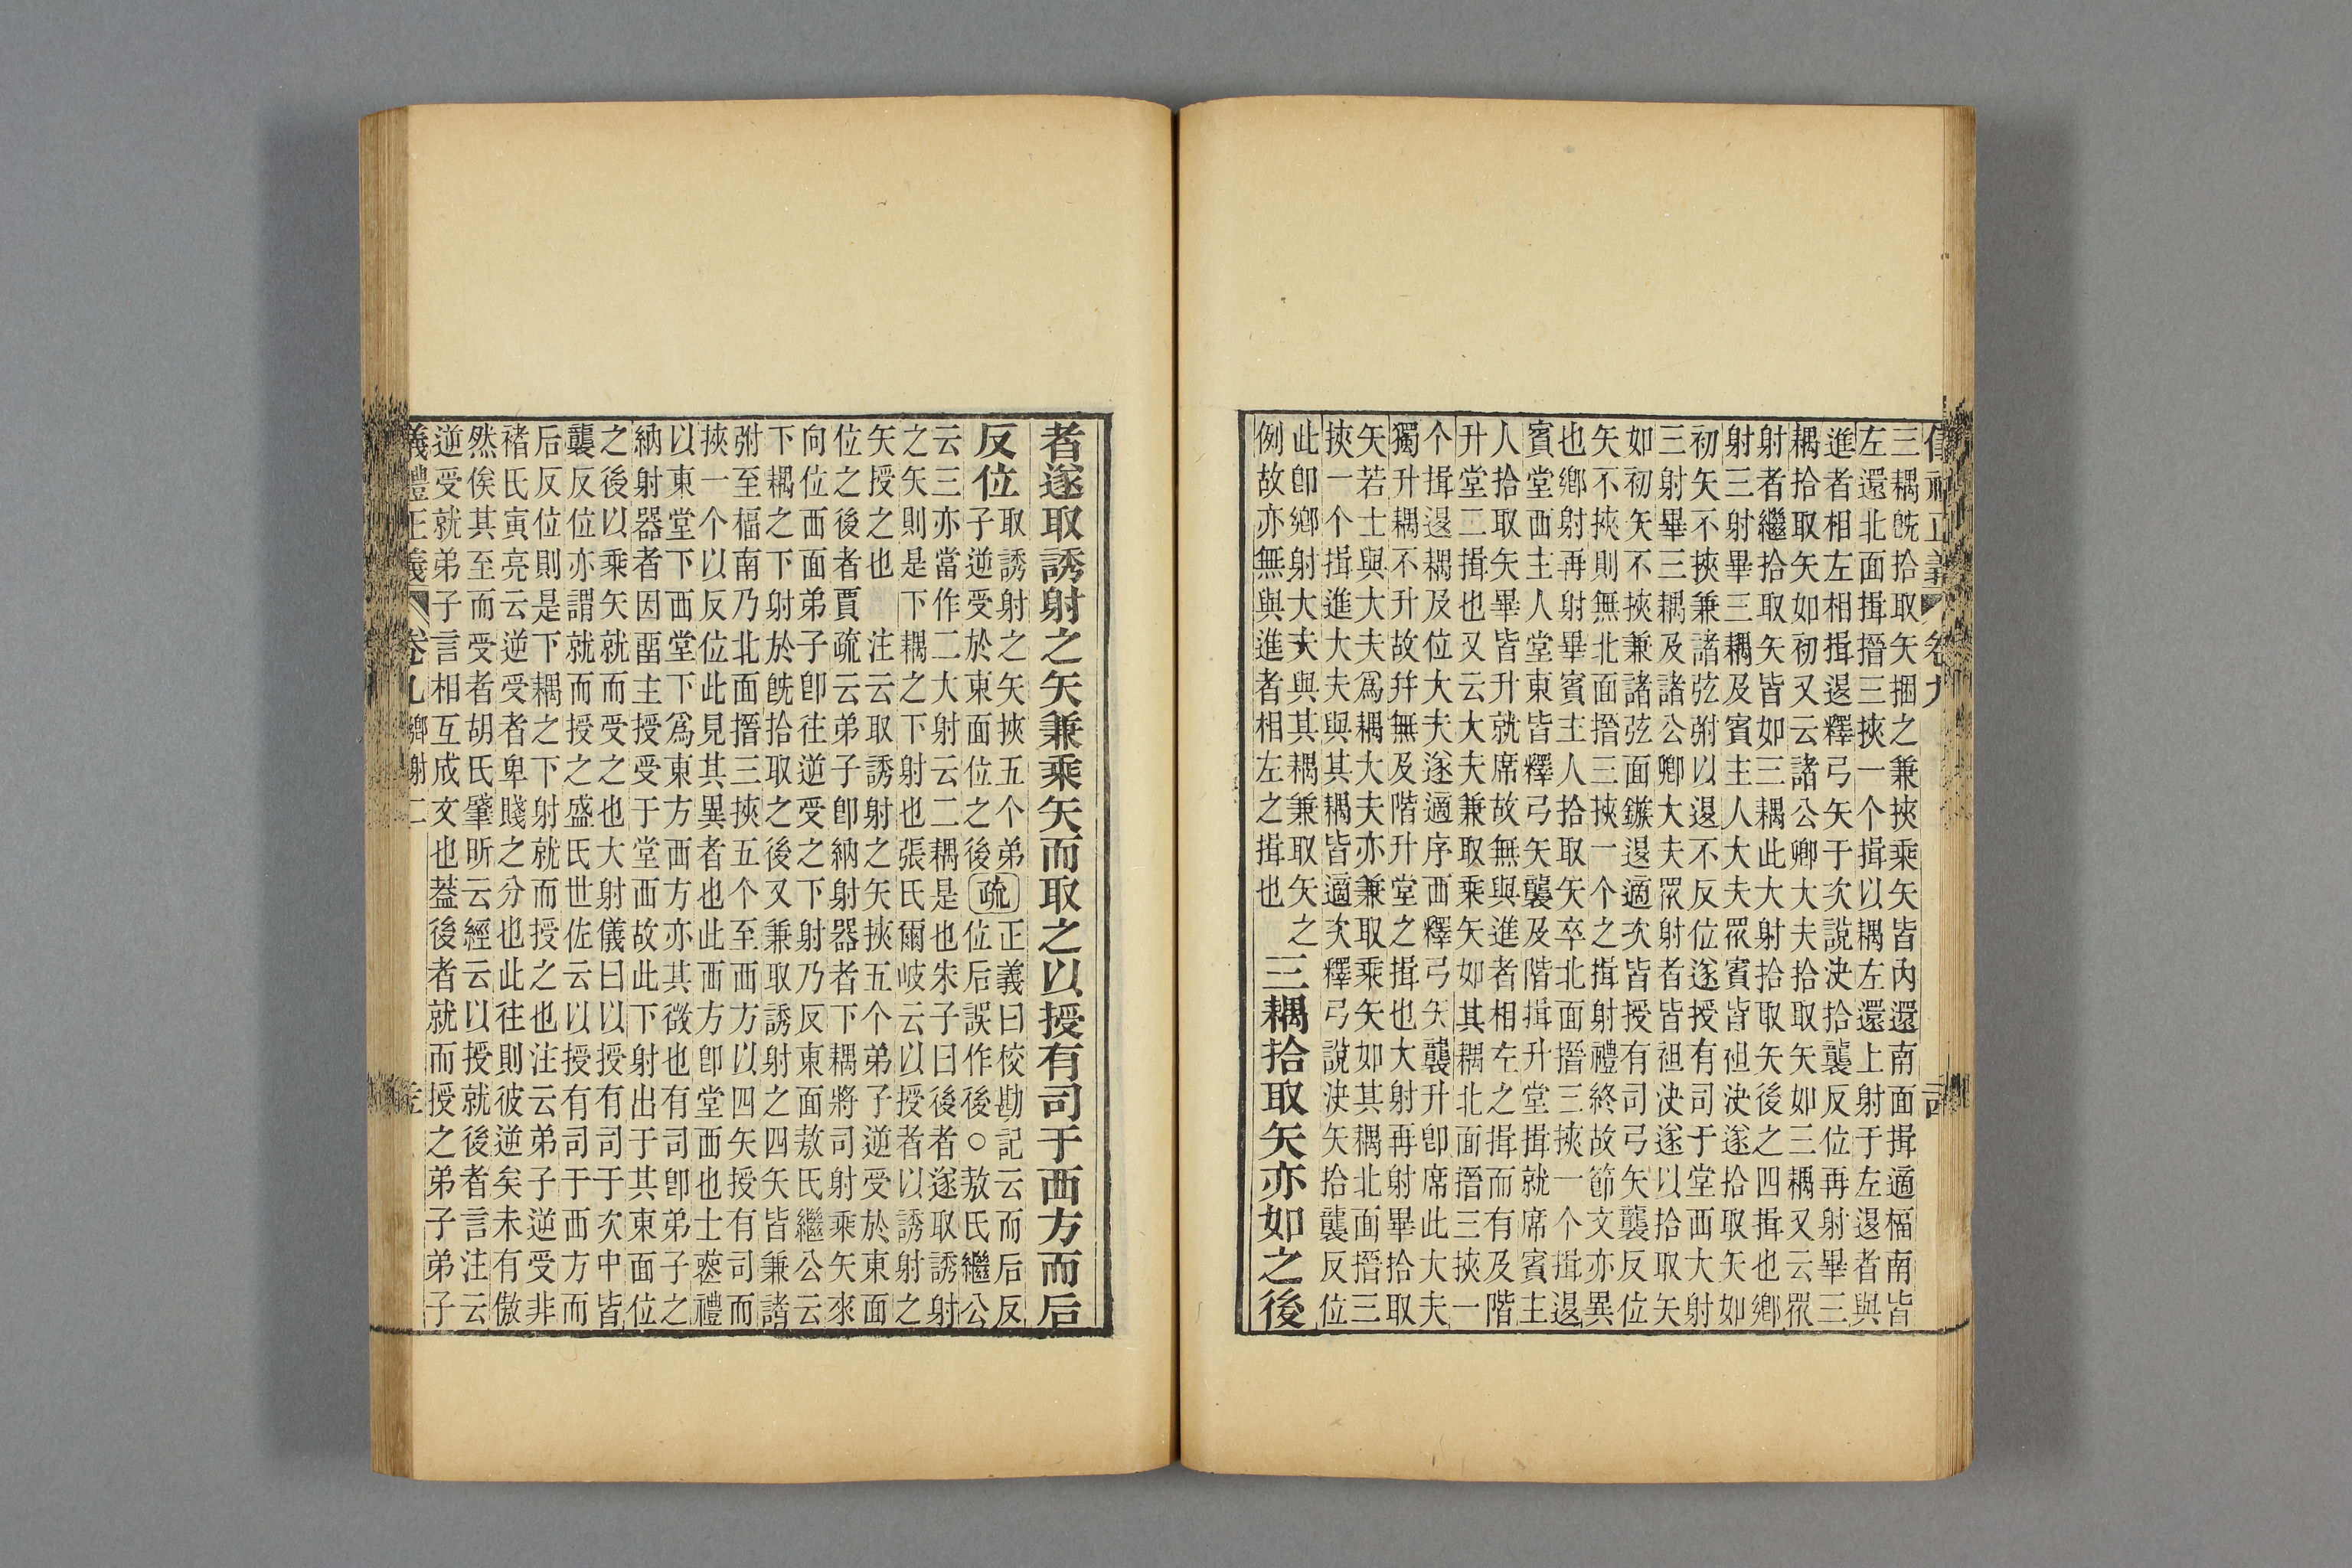 儀禮正義 卷九
三耦旣拾取矢捆之兼挾乘矢皆內還南面揖適楅南皆
左還北面揖搢三挾一个揖以耦左還上射于左退者與
進者相左相揖退釋弓矢于次說決拾襲反位再射畢三
耦拾取矢如初又云諸公卿大夫拾取矢如三耦又云眾
射者繼拾取矢皆如三耦此大射拾取矢後之四揖也鄉
射三射畢三耦及賓主人大夫眾賓皆袒決遂拾取矢如
初矢不挾兼諸弦弣以退不反位遂授有司于堂西大射
三射畢三耦及諸公卿大夫眾射者皆袒決遂以拾取矢
如初矢不挾兼諸弦面鏃退適次皆授有司弓矢襲反位
矢不挾則無北面搢三挾一个之揖射禮終故節文亦異
也鄉射再射畢賓主人拾取矢卒北面搢三挾一个揖退
賓堂西主人堂東皆釋弓矢襲及階揖升堂揖就席賓主
人拾取矢畢皆升就席故無與進者相左之揖而有及階
升堂二揖也又云大夫兼取乘矢如其耦北面搢三挾一
个揖退耦及位大夫遂適序西釋弓矢襲升卽席此大夫
獨升耦不升故幷無及階升堂之揖也大射再射畢拾取
矢若士與大夫爲耦大夫亦兼取乘矢如其耦北面搢三
挾一个揖進大夫與其耦皆適次釋弓說決矢拾襲反位
此卽鄉射大夫與其耦兼取矢之
例故亦無與進者相左之揖也
三耦拾取矢亦如之後
者遂取誘射之矢兼乘矢而取之以授有司于西方而后
反位
取誘射之矢挾五个弟
子逆受於東面位之後
疏
正義曰校勘記云而后反
位后誤作後○敖氏繼公
云三亦當作二大射云二耦是也朱子曰後者遂取誘射
之矢則是下耦之下射也張氏爾岐云以授者以誘射之
矢授之也 注云取誘射之矢挾五个弟子逆受於東面
位之後者賈疏云弟子卽納射器者下耦將司射乘矢來
向位西面弟子卽往逆受之下射乃反東面敖氏繼公云
下耦之下射於旣拾取之後又兼取誘射之四矢皆兼諸
弣至楅南乃北面搢三挾五个至西方以四矢授有司而
挾一个以反位此見其異者也此西方卽堂西也士喪禮
以東堂下西堂下爲東方西方亦其徵也有司卽弟子之
納射器者因畱主授受于堂西故此下射出于其東面位
之後以乘矢就而受之也大射儀曰以授有司于次中皆
襲反位亦謂就而授之盛氏世佐云以授有司于西方而
后反位則是下耦之下射就而授之也注云弟子逆受非
褚氏寅亮云逆受者卑賤之分也此往則彼逆矣未有傲
然俟其至而受者胡氏肇昕云經云以授就後者言注云
逆受就弟子言相互成文也葢後者就而授之弟子弟子
儀禮正義 卷九 鄉射二